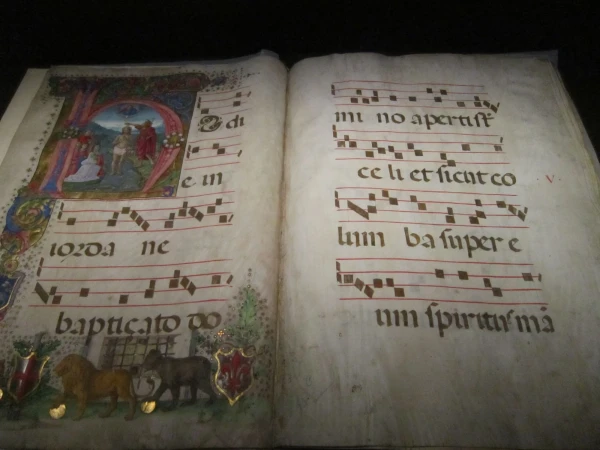 H odi
e in
iorda ne
baptiçato do
mi no aperti st̄
ce li et sicut co v
lum ba super e
um spiritus mā